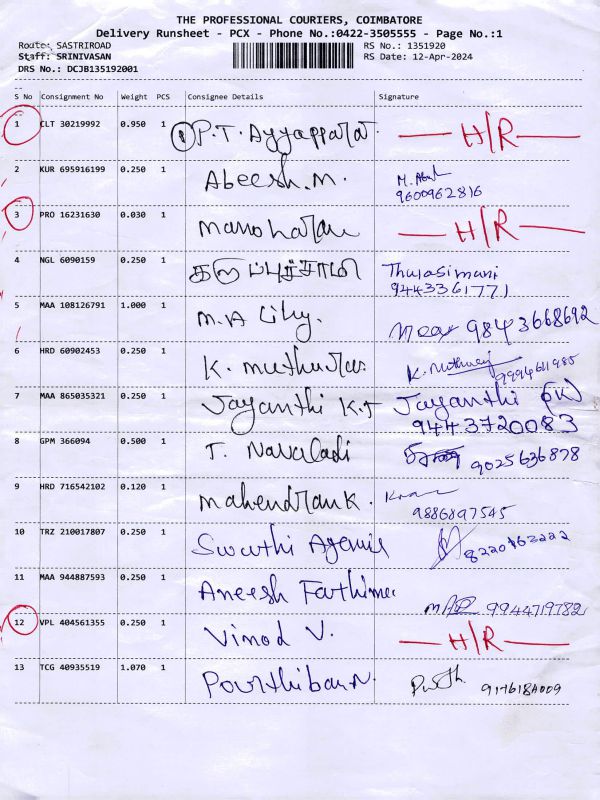 THE PROFESSIONAL COURIERS, COIMBATORE
Delivery Runsheet - PCX - Phone No.:0422-3505555 - Page No.:1
Route: SASTRIROAD RS No.: 1351920
Staff: SRINIVASAN RS Date: 12-Apr-2024
DRS No.: DCJB135192001
S No Consignment No Weight PCS Consignee Details Signature
1 CLT 30219992 0.950 1 1 P.T. Ayyapparaj. H/R
2 KUR 695916199 0.250 1 Abeesh.M. M. 9600962816
3 PRO 16231630 0.030 1 Manoharan H/R
4 NGL 6090159 0.250 1 கருப்புச்சாமி Thulasimani
9443361771
5 MAA 108126791 1.000 1 M.A City. 9843668692
6 HRD 60902453 0.250 1 K. Muthuraj K. Muthuraj 9994611985
7 MAA 865035321 0.250 1 Jayanthi K.J Jayanthi
9443720083
8 GPM 366094 0.500 1 T. Navaladi 9025636878
9 HRD 716542102 0.120 1 Mahendran K.
9886897545
10 TRZ 210017807 0.250 1 Swathi Agencie 8220163222
11 MAA 944887593 0.250 1 Aneesh Fathima 9944719782
12 VPL 404561355 0.250 1 Vinod V. H/R
13 TCG 40935519 1.070 1 Pourthiban.N.